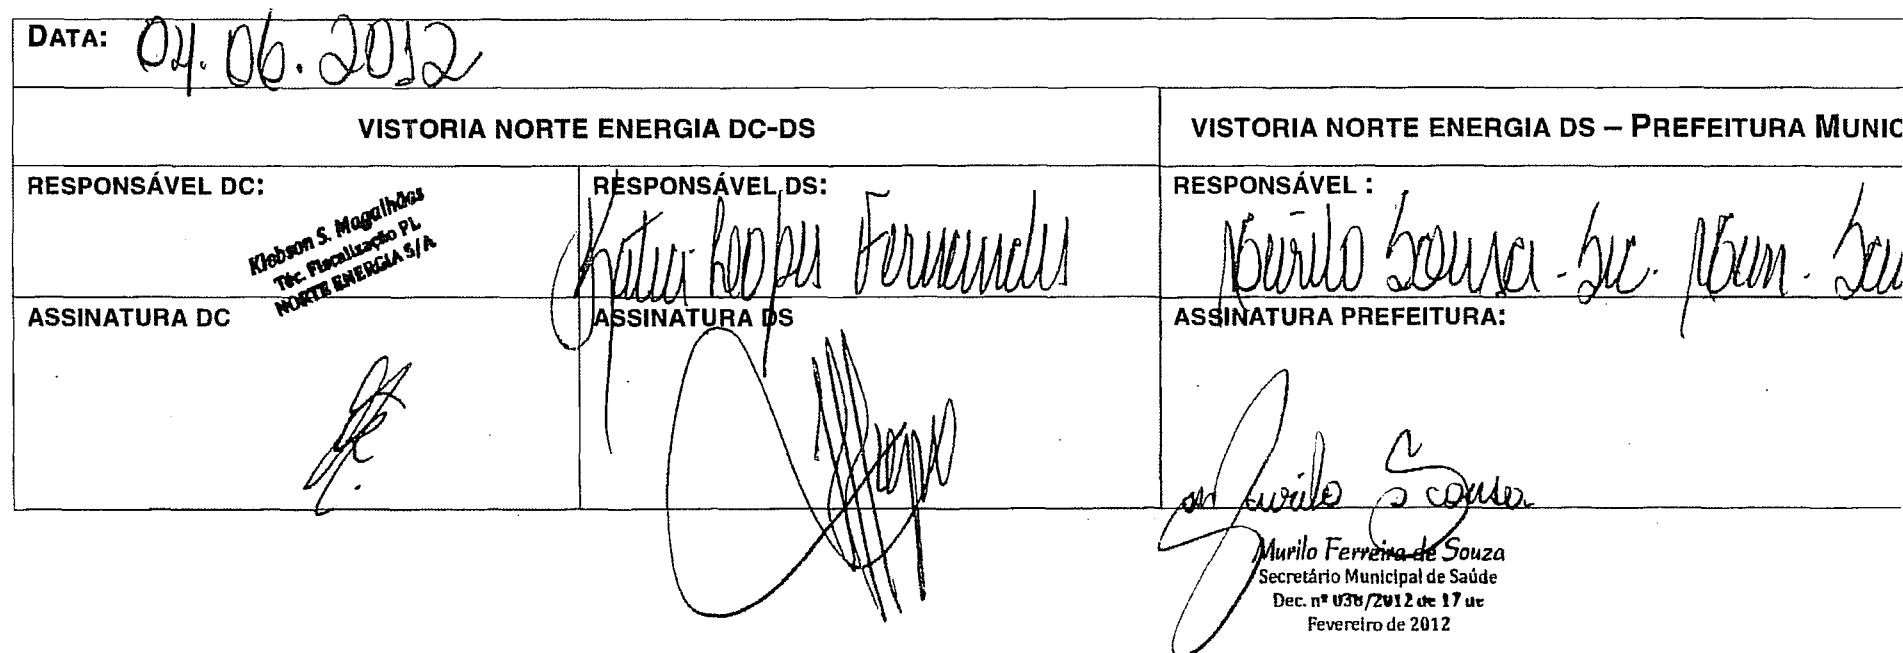 DATA: 04.06.2012
VISTORIA NORTE ENERGIA DC-DS
VISTORIA NORTE ENERGIA DS – PREFEITURA MUNIC
RESPONSÁVEL DC:
Klebson S. Magalhães
Téc. Fiscalização PL
NORTE ENERGIA S/A
RESPONSÁVEL DS:
Lopes Fernandes
RESPONSÁVEL :
Murilo Sousa - Sec. Mun. Sau
ASSINATURA DC
ASSINATURA DS
ASSINATURA PREFEITURA:
Murilo Sousa
Murilo Ferreira de Souza
Secretário Municipal de Saúde
Dec. nº /2012 de 17 de
Fevereiro de 2012